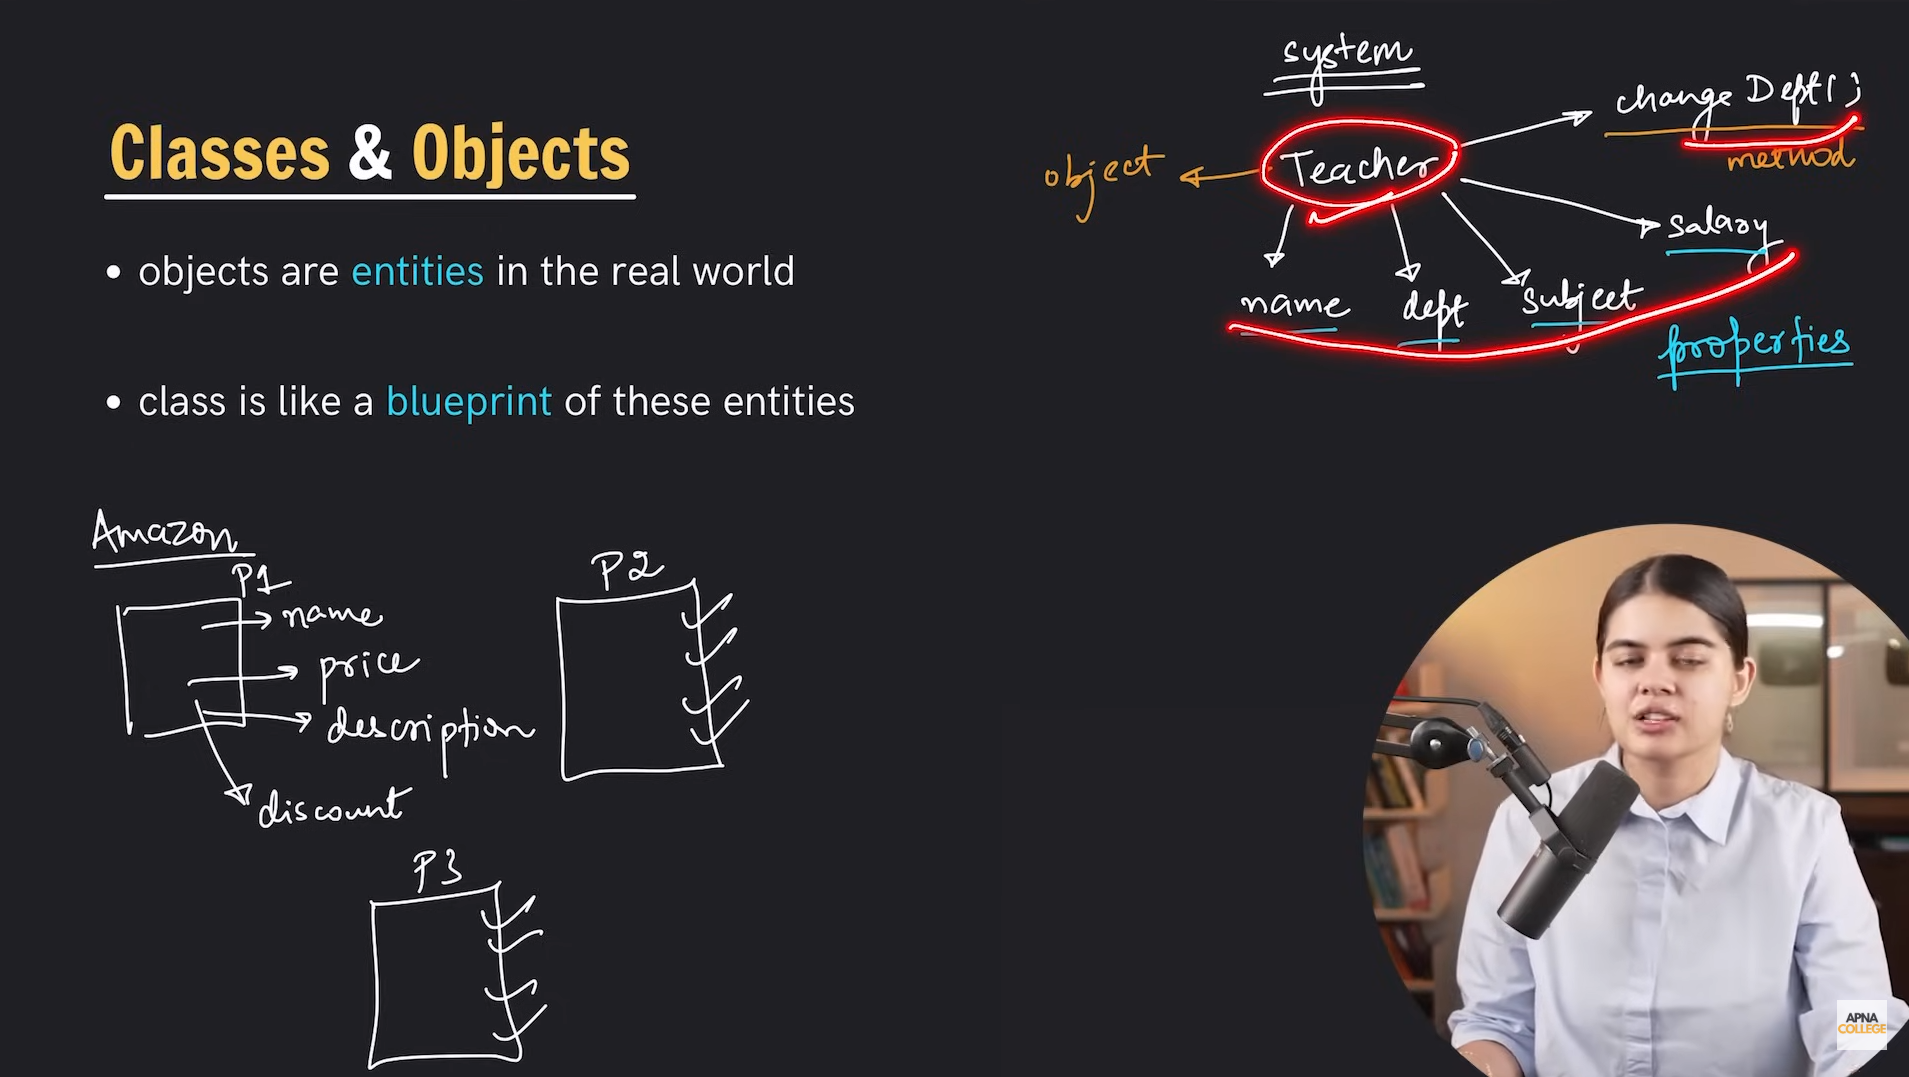 Classes & Objects
• objects are entities in the real world
• class is like a blueprint of these entities
system
Teacher
object
change Dept();
method
salary
name
dept
subject
properties
Amazon
P1
name
price
description
discount
P2
P3
APNA
COLLEGE